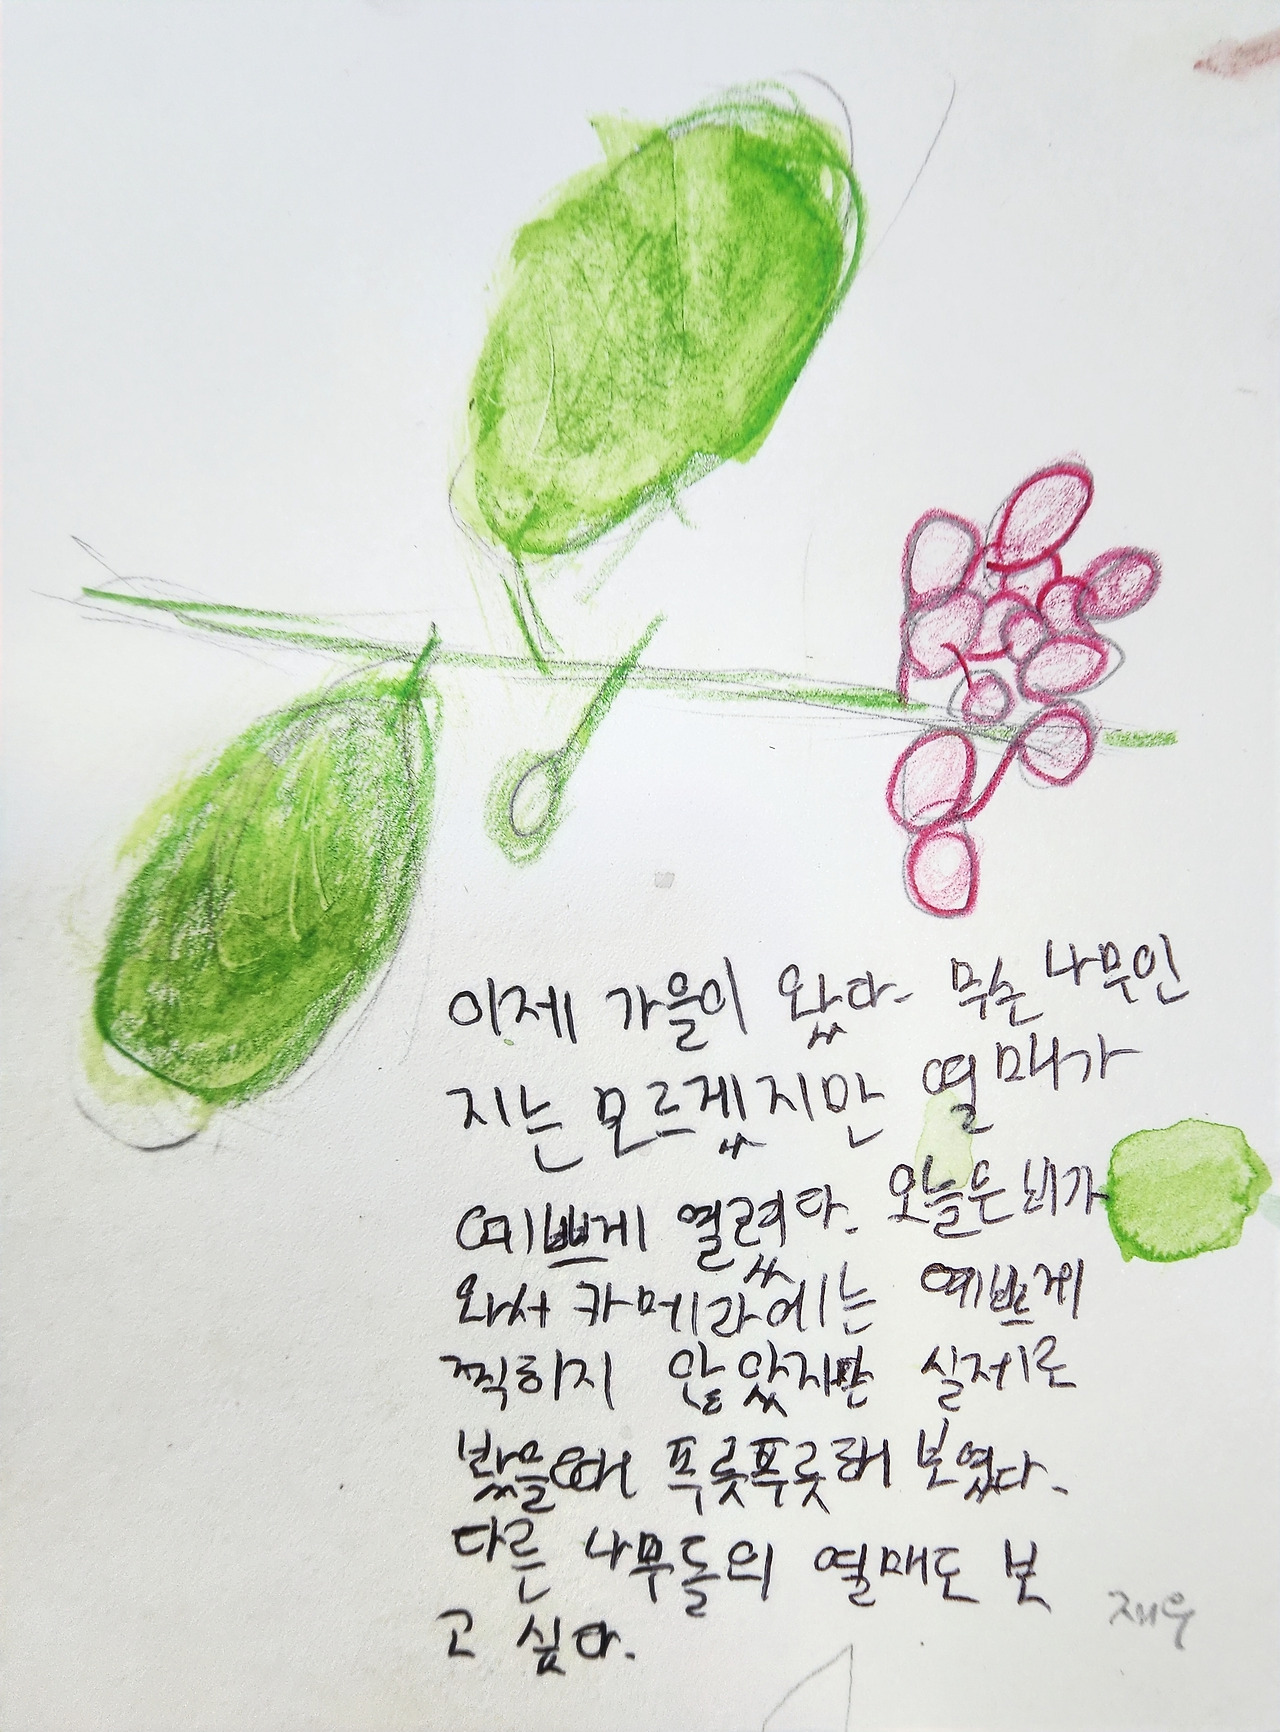 이제 가을이 왔다. 무슨 나무인
지는 모르겠지만 열매가
예쁘게 열렸다. 오늘은 비가
와서 카메라에는 예쁘게
찍히지 않았지만 실제로
봤을때 푸릇푸릇해 보였다.
다른 나무들의 열매도 보
고 싶다.
재우